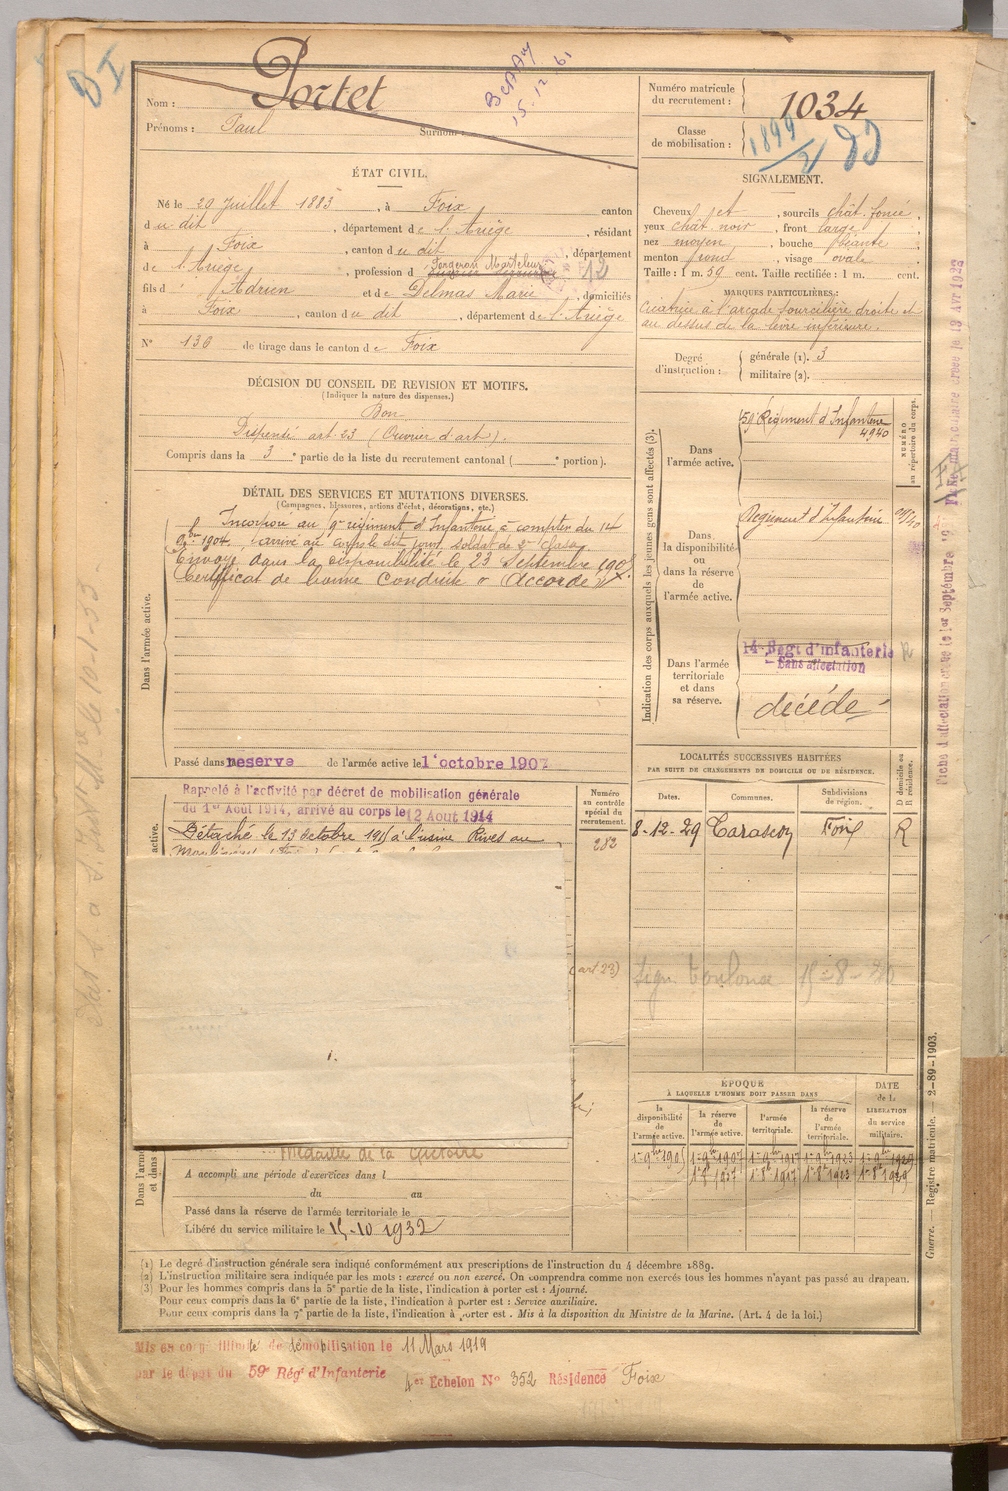 B I
Nom : Portet
Prénoms : Paul Surnom :
15.12.61
Numéro matricule du recrutement : 1034
Classe de mobilisation : 1899
ÉTAT CIVIL.
Né le 20 Juillet 1883, à Foix canton
du dit, département de l'Ariège, résidant
à Foix, canton du dit, département
de l'Ariège, profession de Forgeron Marteleur 12
fils d'Adrien et de Delmas Marie, domiciliés
à Foix, canton du dit, département de l'Ariège
N° 136 de tirage dans le canton de Foix
DÉCISION DU CONSEIL DE REVISION ET MOTIFS.
(Indiquer la nature des dispenses.)
Bon
Dispensé art. 23 (Ouvrier d'art).
Compris dans la 3e partie de la liste du recrutement cantonal ( e portion).
DÉTAIL DES SERVICES ET MUTATIONS DIVERSES.
(Campagnes, blessures, actions d'éclat, décorations, etc.)
Dans l'armée active.
Incorporé au 9e régiment d'Infanterie à compter du 14
9bre 1904, arrivé au corps le dit jour, soldat de 2e classe.
Envoyé dans la disponibilité le 23 Septembre 1905.
Certificat de bonne conduite "Accordé"
Passé dans réserve de l'armée active le 1er octobre 1907
Rappelé à l'activité par décret de mobilisation générale
du 1er Août 1914, arrivé au corps le 12 Aout 1914
Détaché le 13 octobre 1915 à l'usine Rives au
active.
Médaille de la Victoire
A accompli une période d'exercices dans l
du au
Passé dans la réserve de l'armée territoriale le
Libéré du service militaire le 15-10 1932
Numéro au contrôle spécial du recrutement.
282
(art 23)
SIGNALEMENT.
Cheveux et, sourcils chât. foncé,
yeux chât noir, front large,
nez moyen, bouche béante,
menton rond, visage ovale
Taille : 1 m. 59 cent. Taille rectifiée : 1 m. cent.
MARQUES PARTICULIÈRES :
Cicatrice à l'arcade sourcilière droite et
au dessus de la lèvre inférieure.
Degré d'instruction : générale (1). 3
militaire (2).
Indication des corps auxquels les jeunes gens sont affectés (3).
NUMÉRO au répertoire du corps.
Dans l'armée active.
59e Régiment d'Infanterie
4940
Dans la disponibilité ou dans la réserve de l'armée active.
Régiment d'Infanterie
Dans l'armée territoriale et dans sa réserve.
14e Regt d'infanterie
Sans affectation
décédé
LOCALITÉS SUCCESSIVES HABITÉES
PAR SUITE DE CHANGEMENTS DE DOMICILE OU DE RÉSIDENCE.
D domicile ou R résidence.
Dates. Communes. Subdivisions de région.
8-12-29 Tarascon Foix R
Sign. Toulouse 15-8-30
ÉPOQUE
À LAQUELLE L'HOMME DOIT PASSER DANS
la disponibilité de l'armée active. la réserve de l'armée active. l'armée territoriale. la réserve de l'armée territoriale.
DATE de la LIBÉRATION du service militaire.
1er 9bre 1905 1er 9bre 1907 1er 9bre 1917 1er 9bre 1923 1er 9bre 1929
(1) Le degré d'instruction générale sera indiqué conformément aux prescriptions de l'instruction du 4 décembre 1889.
(2) L'instruction militaire sera indiquée par les mots : exercé ou non exercé. On comprendra comme non exercés tous les hommes n'ayant pas passé au drapeau.
(3) Pour les hommes compris dans la 5e partie de la liste, l'indication à porter est : Ajourné.
Pour ceux compris dans la 6e partie de la liste, l'indication à porter est : Service auxiliaire.
Pour ceux compris dans la 7e partie de la liste, l'indication à porter est : Mis à la disposition du Ministre de la Marine. (Art. 4 de la loi.)
Guerre. — Registre matricule. — 2-89-1903.
Mis en congé illimité de démobilisation le 11 Mars 1919
par le dépôt du 59e Régt d'Infanterie 4er Echelon N° 352 Résidence Foix